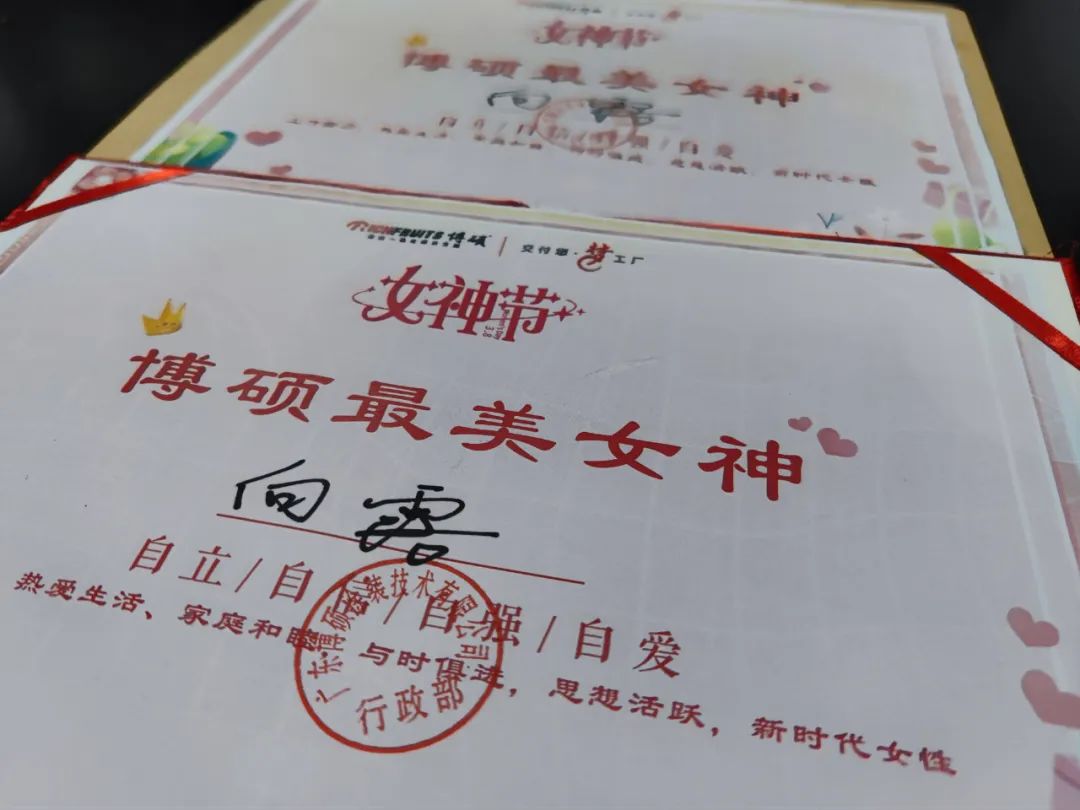 女神节
博硕最美女神
自爱
新时代女性
RICHFRUITS 博硕 | 交付您·梦工厂
女神节
3.8
博硕最美女神
向露
自立/自/自强/自爱
热爱生活、家庭和睦，与时俱进，思想活跃，新时代女性
广东博硕涂装技术有限公司
行政部